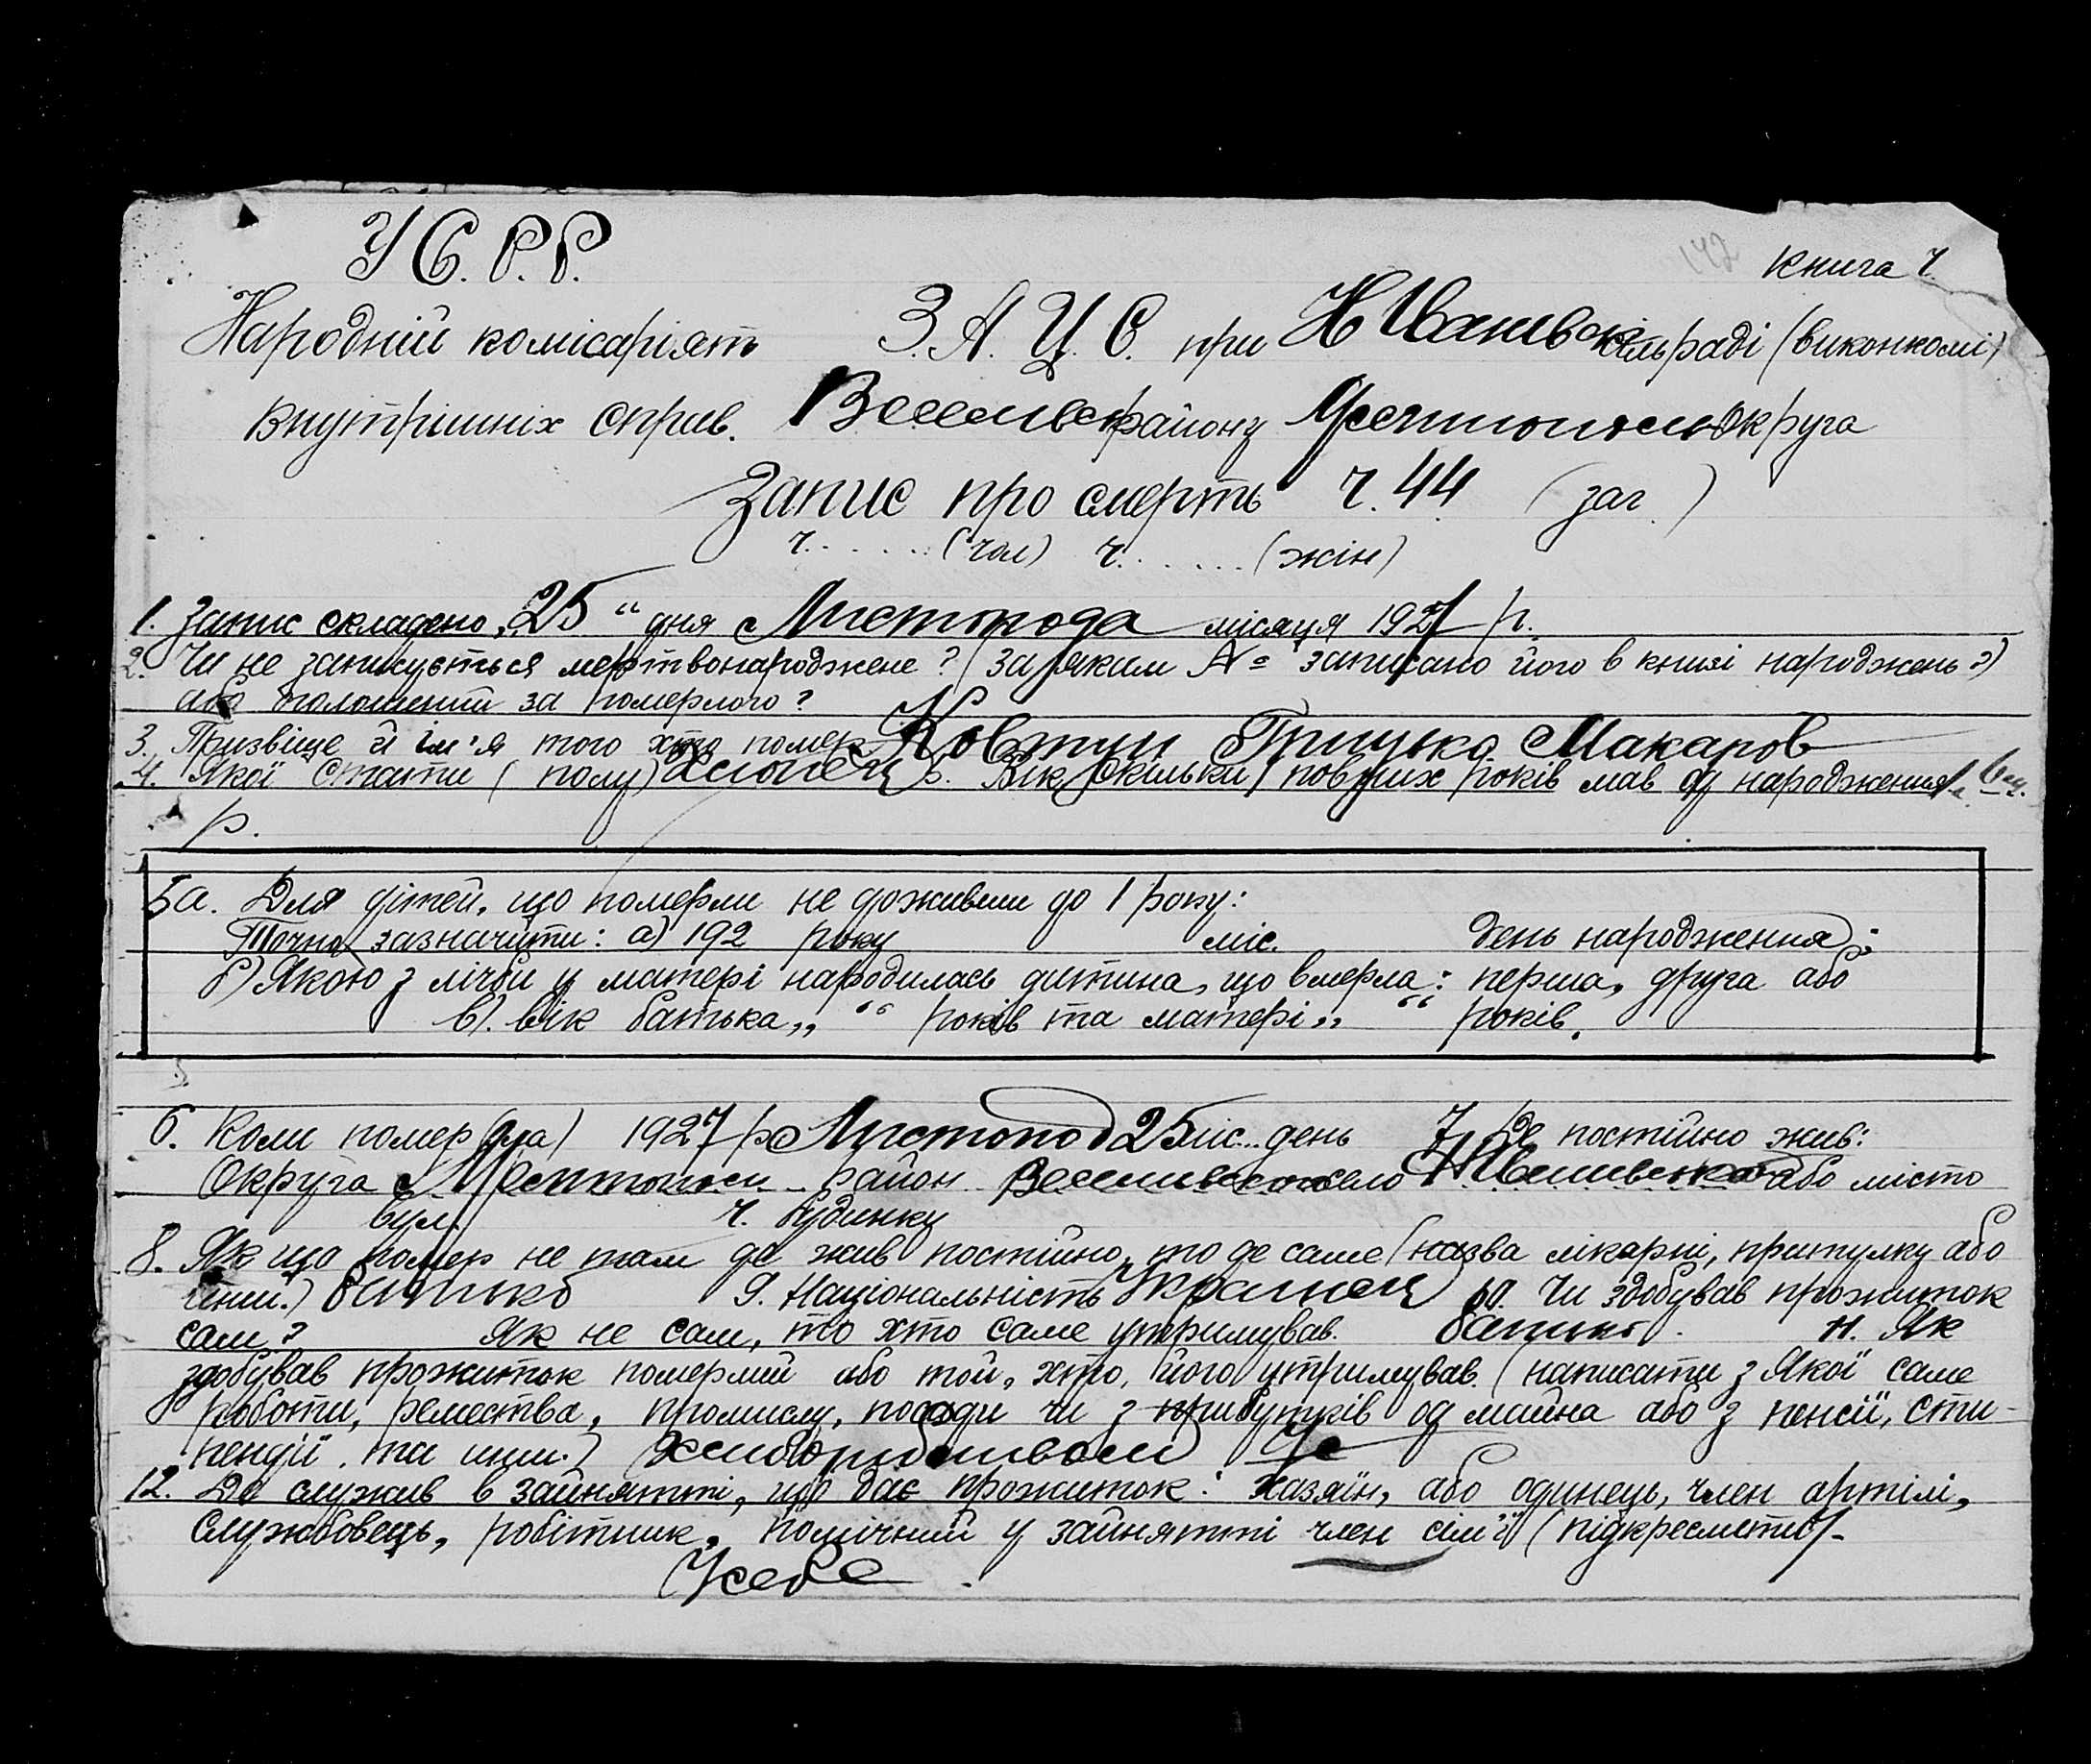 У С. Р. Р.
142 книга ч.
Народній комісаріят З. А. Ц. С. при Н Іванівск сільраді (виконкомі)
внутрішніх справ. Веселівск району Мелітопільск Округа
Запис про смерть ч. 44 (заг.)
ч. . . . . . (чол) ч. . . . . . (жін)
1. Запис складено „25“ дня Листопода місяця 1927 р.
2. Чи не записується мертвонароджене? (за яким № записано його в книзі народжень?)
або оголошення за померлого?
3. Призвіще й ім'я того хто помер Ковтун Грицько Макаров
4. Якої стати (полу) Хлопець 5. Вік, скільки повних років мав од народження
р.
5а. Для дітей, що померли не доживши до 1 року:
Точно зазначити: а) 192 року міс. день народження;
б) Якою з лічби у матері народилась дитина, що вмерла: перша, друга або
в). вік батька „ “ років та матері „ “ років.
6. Коли помер(ла) 1927 р Листопод 25 міс... день 7. Де постійно жив:
Округа Мелітопільск район Веселівского село Н Іванівського або місто
вул. ч. будинку
8. Як що помер не там де жив постійно, то де саме (назва лікарні, притулку або
інш.) батько 9. Національність Українец 10. Чи здобував прожиток
сам? Як не сам, то хто саме утримував. батько. 11. Як
здобував прожиток померлий або той, хто, його утримував (написати з Якої саме
роботи, ремества, промислу, посади чи з прибутків од майна або з пенсії, сти-
пендії та инш.) хліборобством
12. Де служив в зайнятті, що дає прожиток: хазяїн, або одинець, член артілі,
службовець, робітник, помічний у зайнятті член сім'ї (підкреслити)-
У себе.